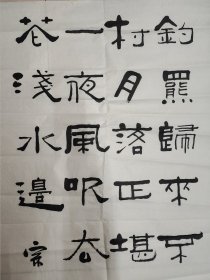 釣罷歸來不
村月落正堪
一夜風吹去
花淺水邊宗